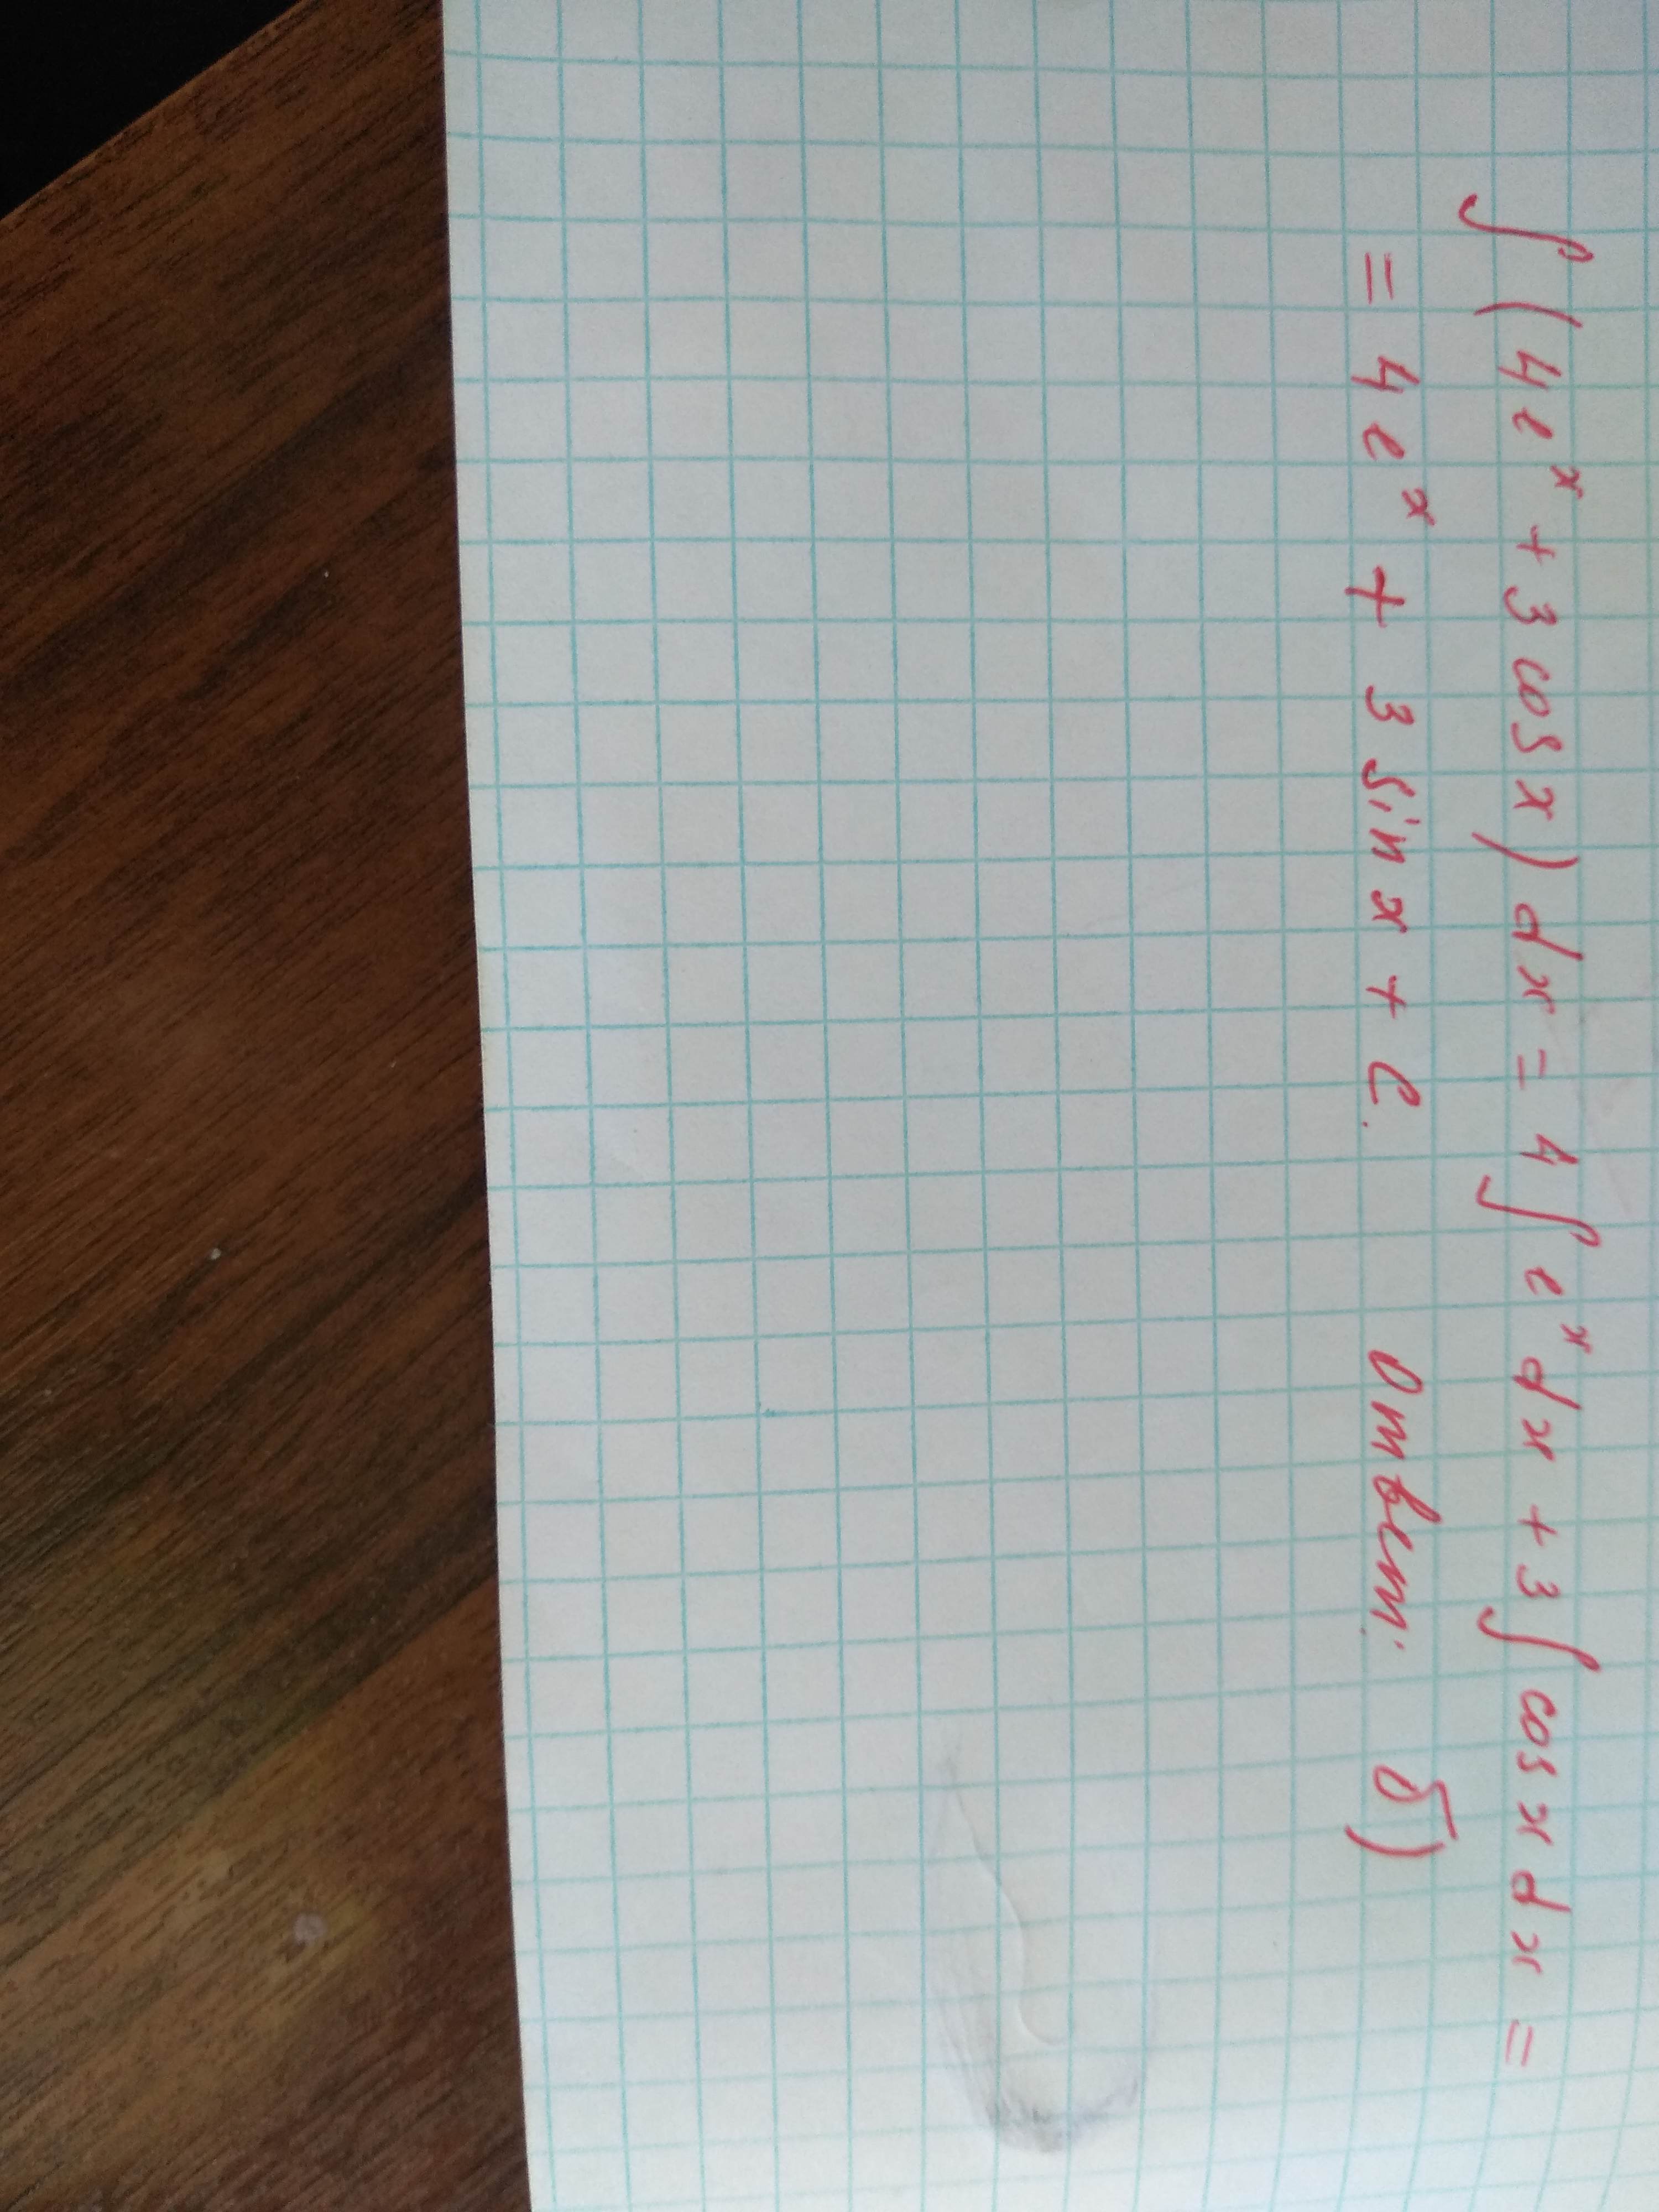 ∫(4eˣ + 3 cos x) dx = 4∫eˣ dx + 3∫cos x dx =
= 4eˣ + 3 sin x + C. Ответ: б)